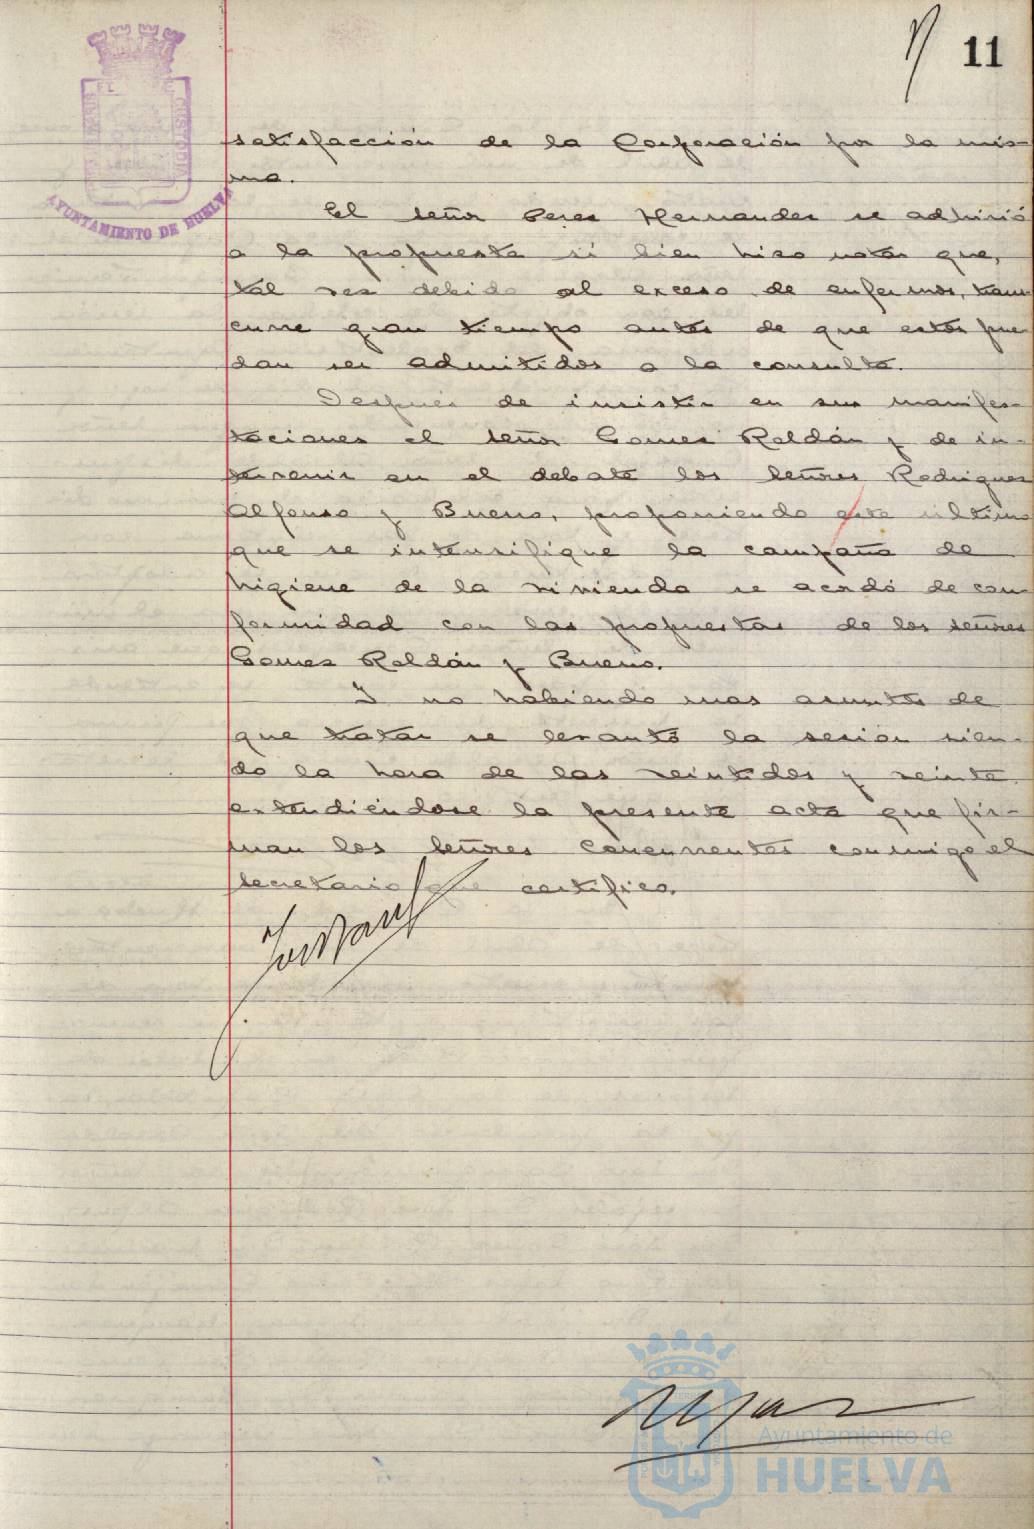 11
satisfacción de la Corporación por la mis-
ma.
El señor Perez Hernandez se adhirió
a la propuesta si bien hizo notar que,
tal vez debido al exceso de enfermos, trans
curre gran tiempo antes de que estos pue
dan ser admitidos a la consulta.
Después de insistir en sus manifes-
taciones el señor Gomez Roldán y de in-
tervenir en el debate los señores Rodriguez
Alfonso y Bueno, proponiendo este último
que se intensifique la campaña de
higiene de la vivienda se acordó de con-
formidad con las propuestas de los señores
Gomez Roldán y Bueno.
Y no habiendo mas asuntos de
que tratar se levantó la sesión sien-
do la hora de las veintidos y veinte
extendiéndose la presente acta que fir-
man los señores concurrentes conmigo el
secretario que certifico.
AYUNTAMIENTO DE HUELVA
CUSTODIA
Ayuntamiento de
HUELVA